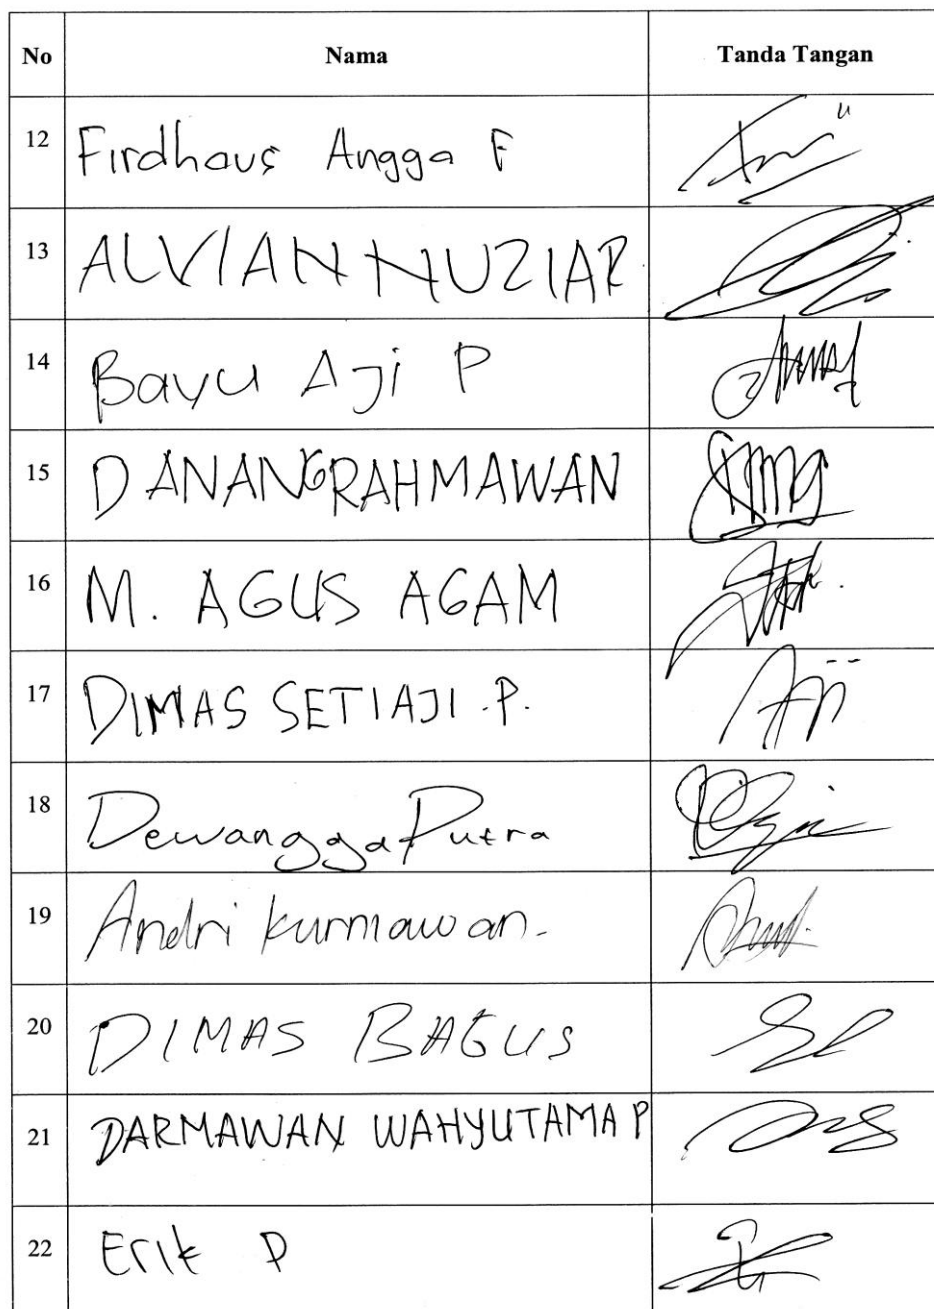 No Nama Tanda Tangan
12 Firdhaus Angga F
13 ALVIAN NUZIAR
14 Bayu Aji P
15 DANANG RAHMAWAN
16 M. AGUS AGAM
17 DIMAS SETIAJI .P.
18 Dewangga Putra
19 Andri kurniawan.
20 DIMAS BAGUS
21 DARMAWAN WAHYUTAMA P
22 Erik P